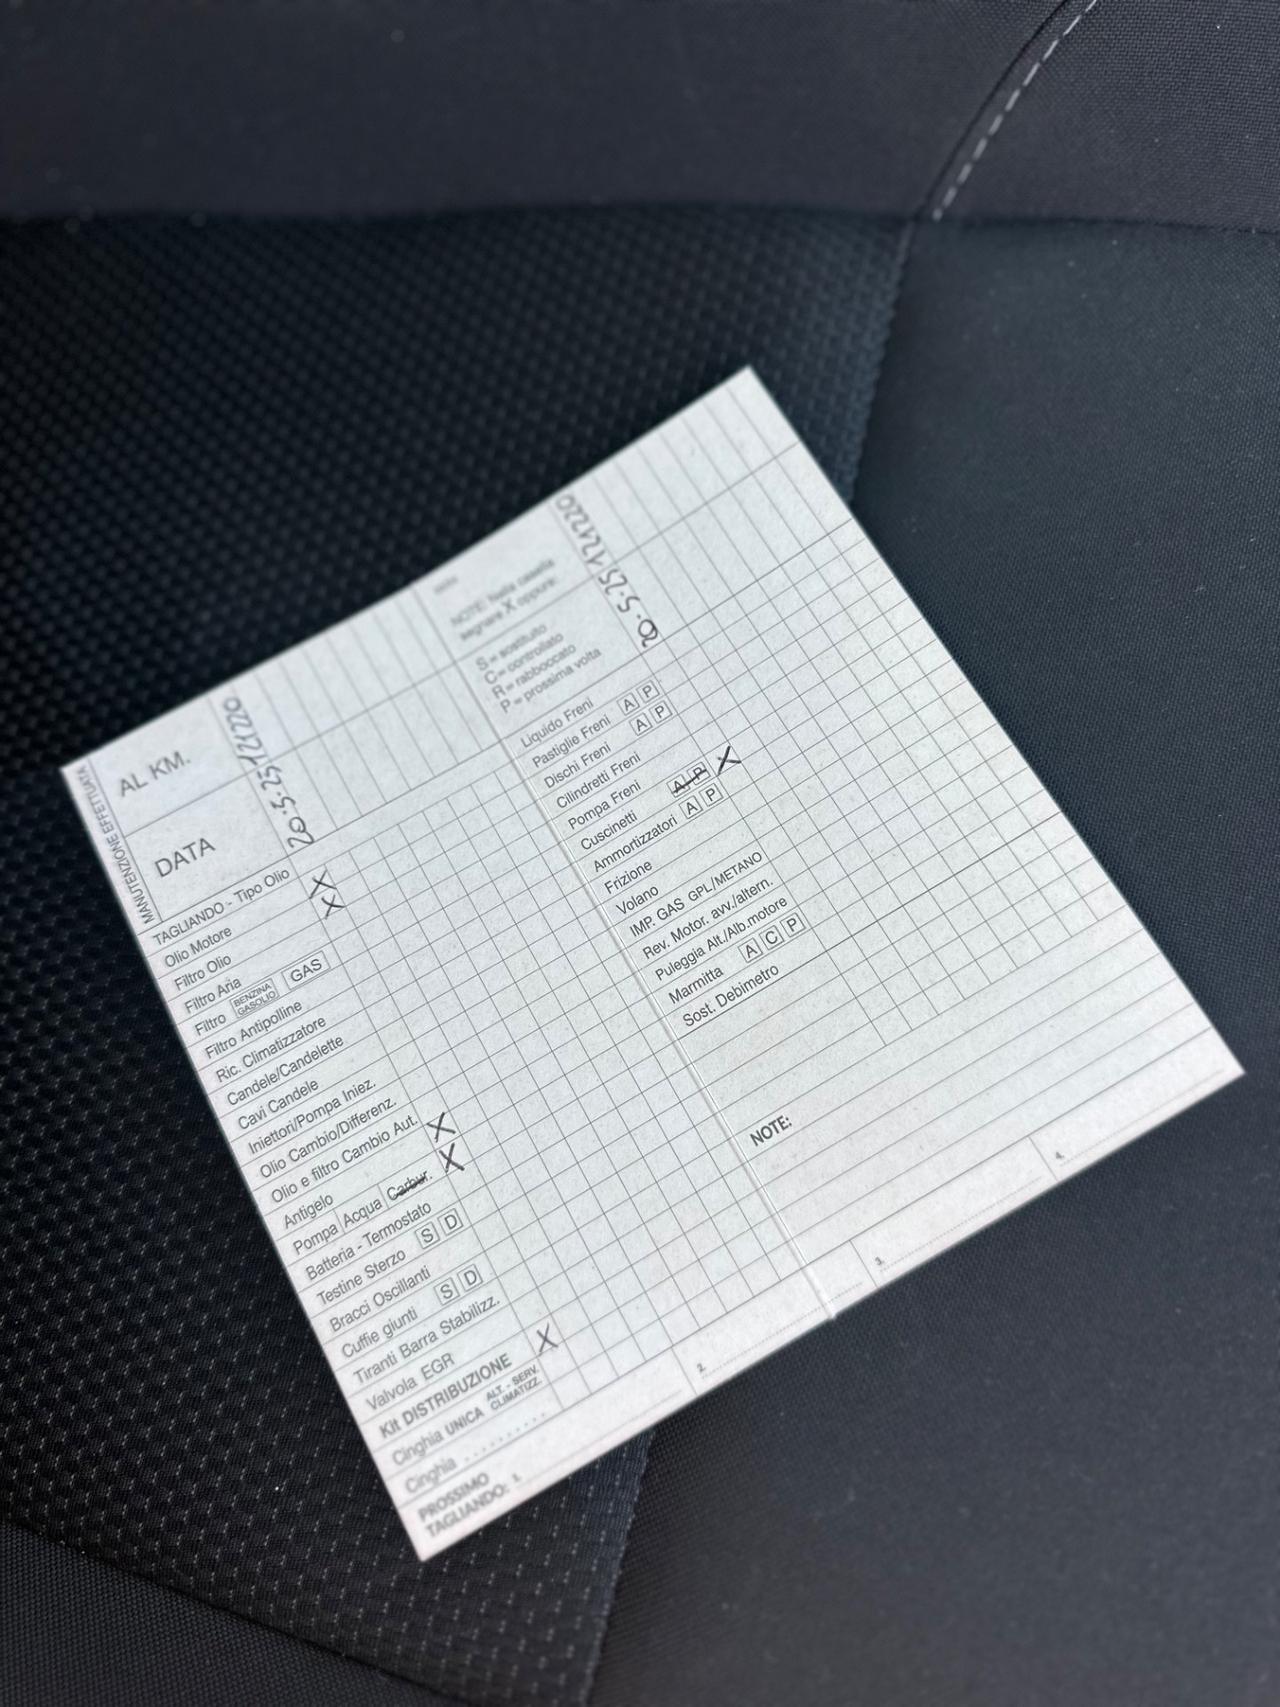 MANUTENZIONE EFFETTUATA
AL KM. 121220
DATA 20.5.25
TAGLIANDO - Tipo Olio
Olio Motore X
Filtro Olio X
Filtro Aria
Filtro BENZINA GASOLIO GAS
Filtro Antipolline
Ric. Climatizzatore
Candele/Candelette
Cavi Candele
Iniettori/Pompa Iniez.
Olio Cambio/Differenz.
Olio e filtro Cambio Aut.
Antigelo X
Pompa Acqua Carbur. X
Batteria - Termostato
Testine Sterzo S D
Bracci Oscillanti
Cuffie giunti S D
Tiranti Barra Stabilizz.
Valvola EGR
Kit DISTRIBUZIONE X
Cinghia UNICA ALT. - SERV. CLIMATIZZ.
Cinghia ..........
PROSSIMO
TAGLIANDO: 1.
2.
NOTE: Nella casella
segnare X oppure:
S = sostituito
C = controllato
R = rabboccato
P = prossima volta
121220
20.5.25
Liquido Freni
Pastiglie Freni A P
Dischi Freni A P
Cilindretti Freni
Pompa Freni
Cuscinetti A P X
Ammortizzatori A P
Frizione
Volano
IMP. GAS GPL/METANO
Rev. Motor. avv./altern.
Puleggia Alt./Alb.motore
Marmitta A C P
Sost. Debimetro
NOTE:
3.
4.